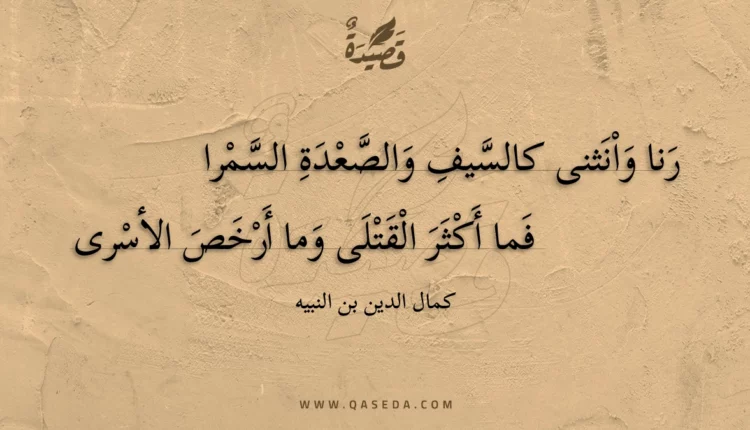 قَصِيدَةٌ
رَنا وَاْنَثنى كالسَّيفِ وَالصَّعْدَةِ السَّمْرا
فَما أَكْثَرَ الْقَتْلَى وَما أَرْخَصَ الأسْرى
كمال الدين بن النبيه
WWW.QASEDA.COM